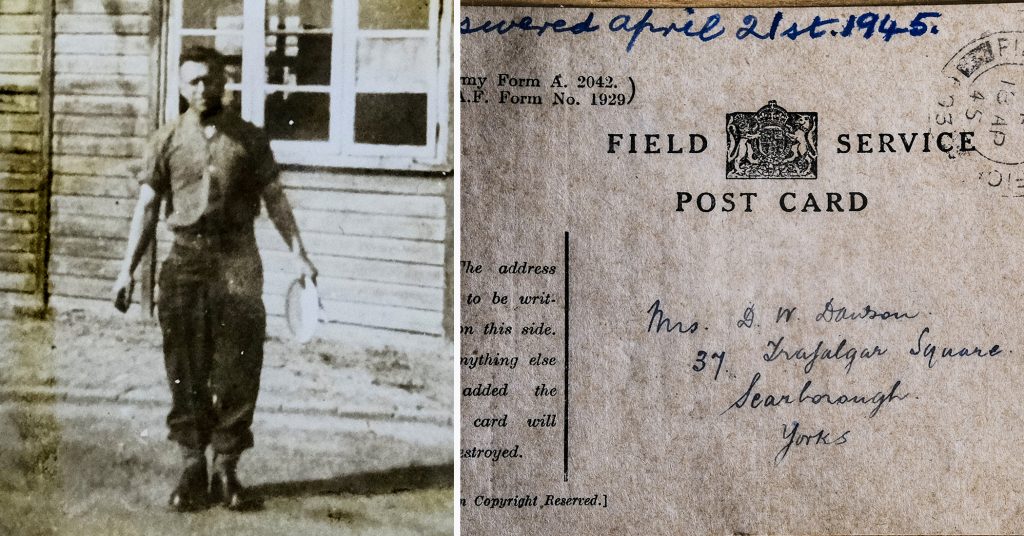 swered April 21st. 1945.
my Form A. 2042.
A.F. Form No. 1929
FIELD SERVICE
POST CARD
The address
to be writ-
on this side.
nything else
added the
card will
estroyed.
n Copyright Reserved.]
Mrs. D. W. Dawson.
37 Trafalgar Square.
Scarborough.
Yorks
FI
18 AP
45